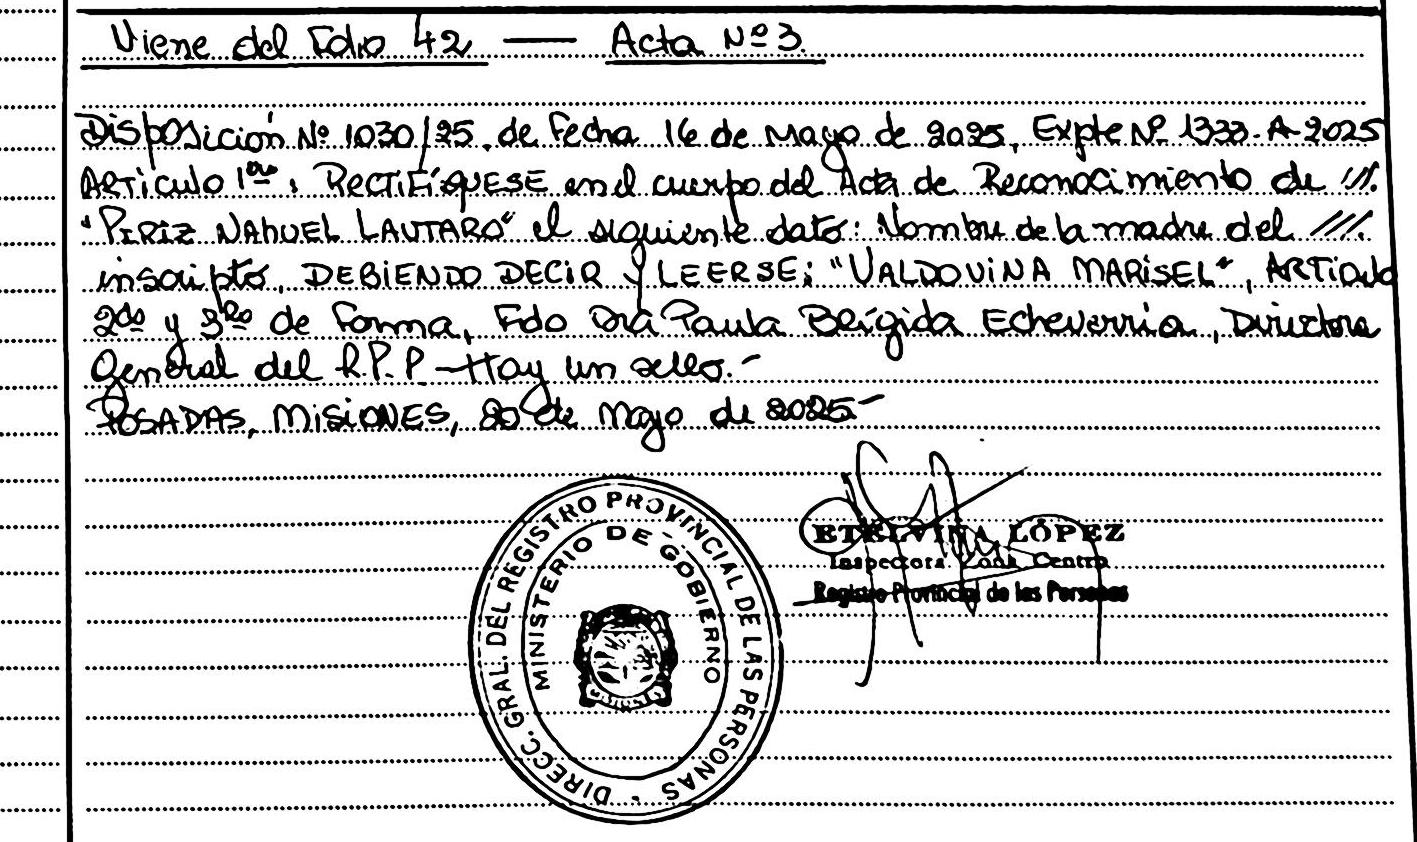 Viene del Folio 42 — Acta Nº 3.
Disposición Nº 1030/25, de Fecha 16 de Mayo de 2025, Expte Nº 1333-A-2025
ARTICULO 1ro: RECTIFÍQUESE en el cuerpo del Acta de Reconocimiento de ///.
"PIRIZ NAHUEL LAUTARO" el siguiente dato: Nombre de la madre del ///.
inscripto, DEBIENDO DECIR y LEERSE: "VALDOVINA MARISEL", ARTICULO
2do y 3ro de Forma, Fdo Dra Paula Brígida Echeverria, Directora
General del R.P.P. - Hay un sello.-
POSADAS, MISIONES, 20 de Mayo de 2025-
DIRECC. GRAL. DEL REGISTRO PROVINCIAL DE LAS PERSONAS
MINISTERIO DE GOBIERNO
ETELVINA LÓPEZ
Inspectora Zona Centro
Registro Provincial de las Personas